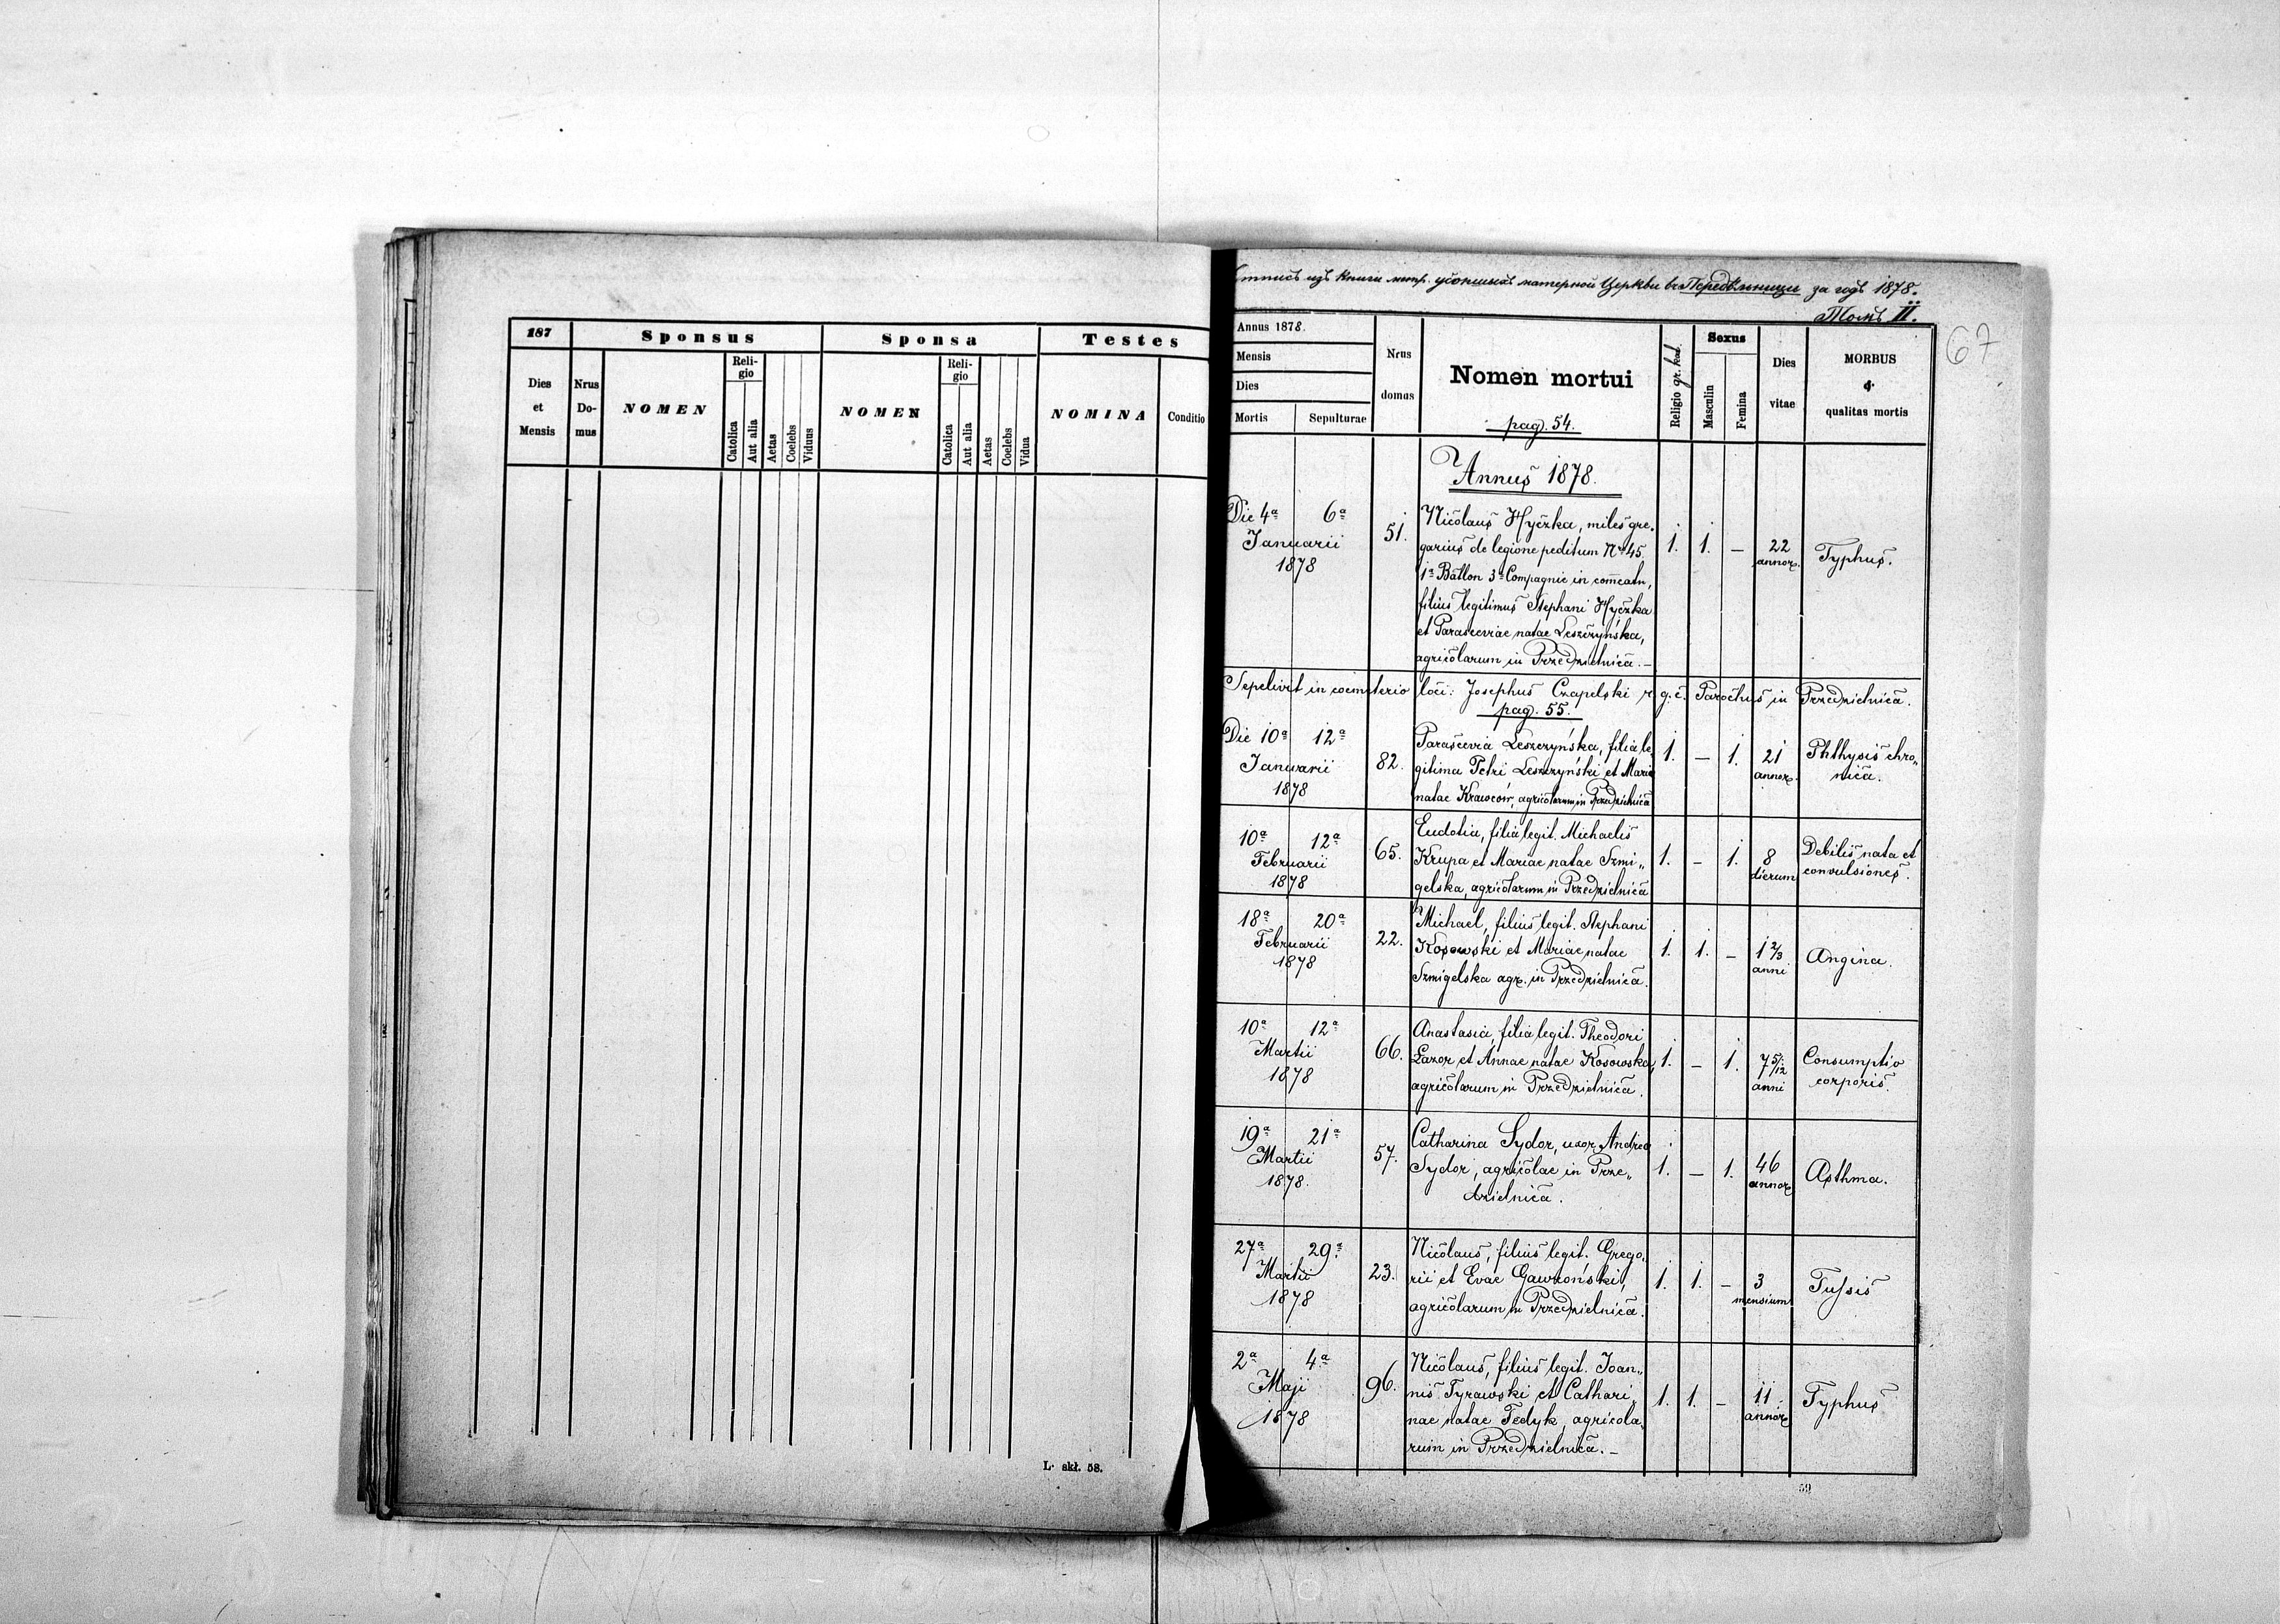 187
Sponsus
Sponsa
Testes
Dies et Mensis
Nrus Do- mus
NOMEN
Reli- gio
Catolica
Aut alia
Aetas
Coelebs
Viduus
NOMEN
Reli- gio
Catolica
Aut alia
Aetas
Coelebs
Vidua
NOMINA
Conditio
L. skł. 58.
изъ Книги метр. усопшихъ матерной Церкви въ Передѣльници за годъ 1878.
Томъ II.
67
Annus 1878.
Mensis
Dies
Mortis
Sepulturae
Nrus domus
Nomen mortui
pag. 54.
Religio gr. kat.
Sexus
Masculin
Femina
Dies vitae
MORBUS
&
qualitas mortis
Annus 1878.
Die 4a 6a
Januarii
1878
51.
Nicolaus Hyczka, miles gre-
garius de legione peditum Nr 45
1a Batlon 3a Compagnie in comeatu,
filius legitimus Stephani Hyczka
et Parasceviae natae Leszczyńska,
agricolarum in Przedzielnica.-
1. 1. –
22
annor.
Typhus.
Sepelivit in coemeterio loci: Josephus Czapelski r. g. c. Parochus in Przedzielnica.
pag. 55.
Die 10a 12a
Januarii
1878
82.
Parascevia Leszczyńska, filia le-
gitima Petri Leszczyński et Maria
natae Krawców, agricolarum in Przedzielnica
1. – 1.
21
annor.
Phthysis chro„
nica.
10a 12a
Februarii
1878
65.
Eudotia, filia legit. Michaelis
Krupa et Mariae natae Szmi„
gelska, agricolarum in Przedzielnica
1. – 1.
8
dierum
Debilis nata et
convulsiones.
18a 20a
Februarii
1878
22.
Michael, filius legit. Stephani
Kosowski et Mariae natae
Szmigelska agr. in Przedzielnica.
1. 1. –
1 2/3
anni
Angina.
10a 12a
Martii
1878
66.
Anastasia, filia legit. Theodori
Łazor et Annae natae Kosowska,
agricolarum in Przedzielnica.
1. – 1.
7 5/12
anni
Consumptio
corporis.
19a 21a
Martii
1878.
57.
Catharina Sydor, uxor Andrea
Sydor, agricolae in Prze„
dzielnica.
1. – 1.
46
annor
Asthma.
27a 29a
Martii
1878
23.
Nicolaus, filius legit. Grego„
rii et Evae Gawroński,
agricolarum in Przedzielnica.
1. 1. –
3
mensium
Tussis
2a 4a
Maji
1878
96.
Nicolaus, filius legit. Joan„
nis Tyrawski et Cathari„
nae natae Fedyk, agricola„
rum in Przedzielnica.-
1. 1. –
11
annor
Typhus
59